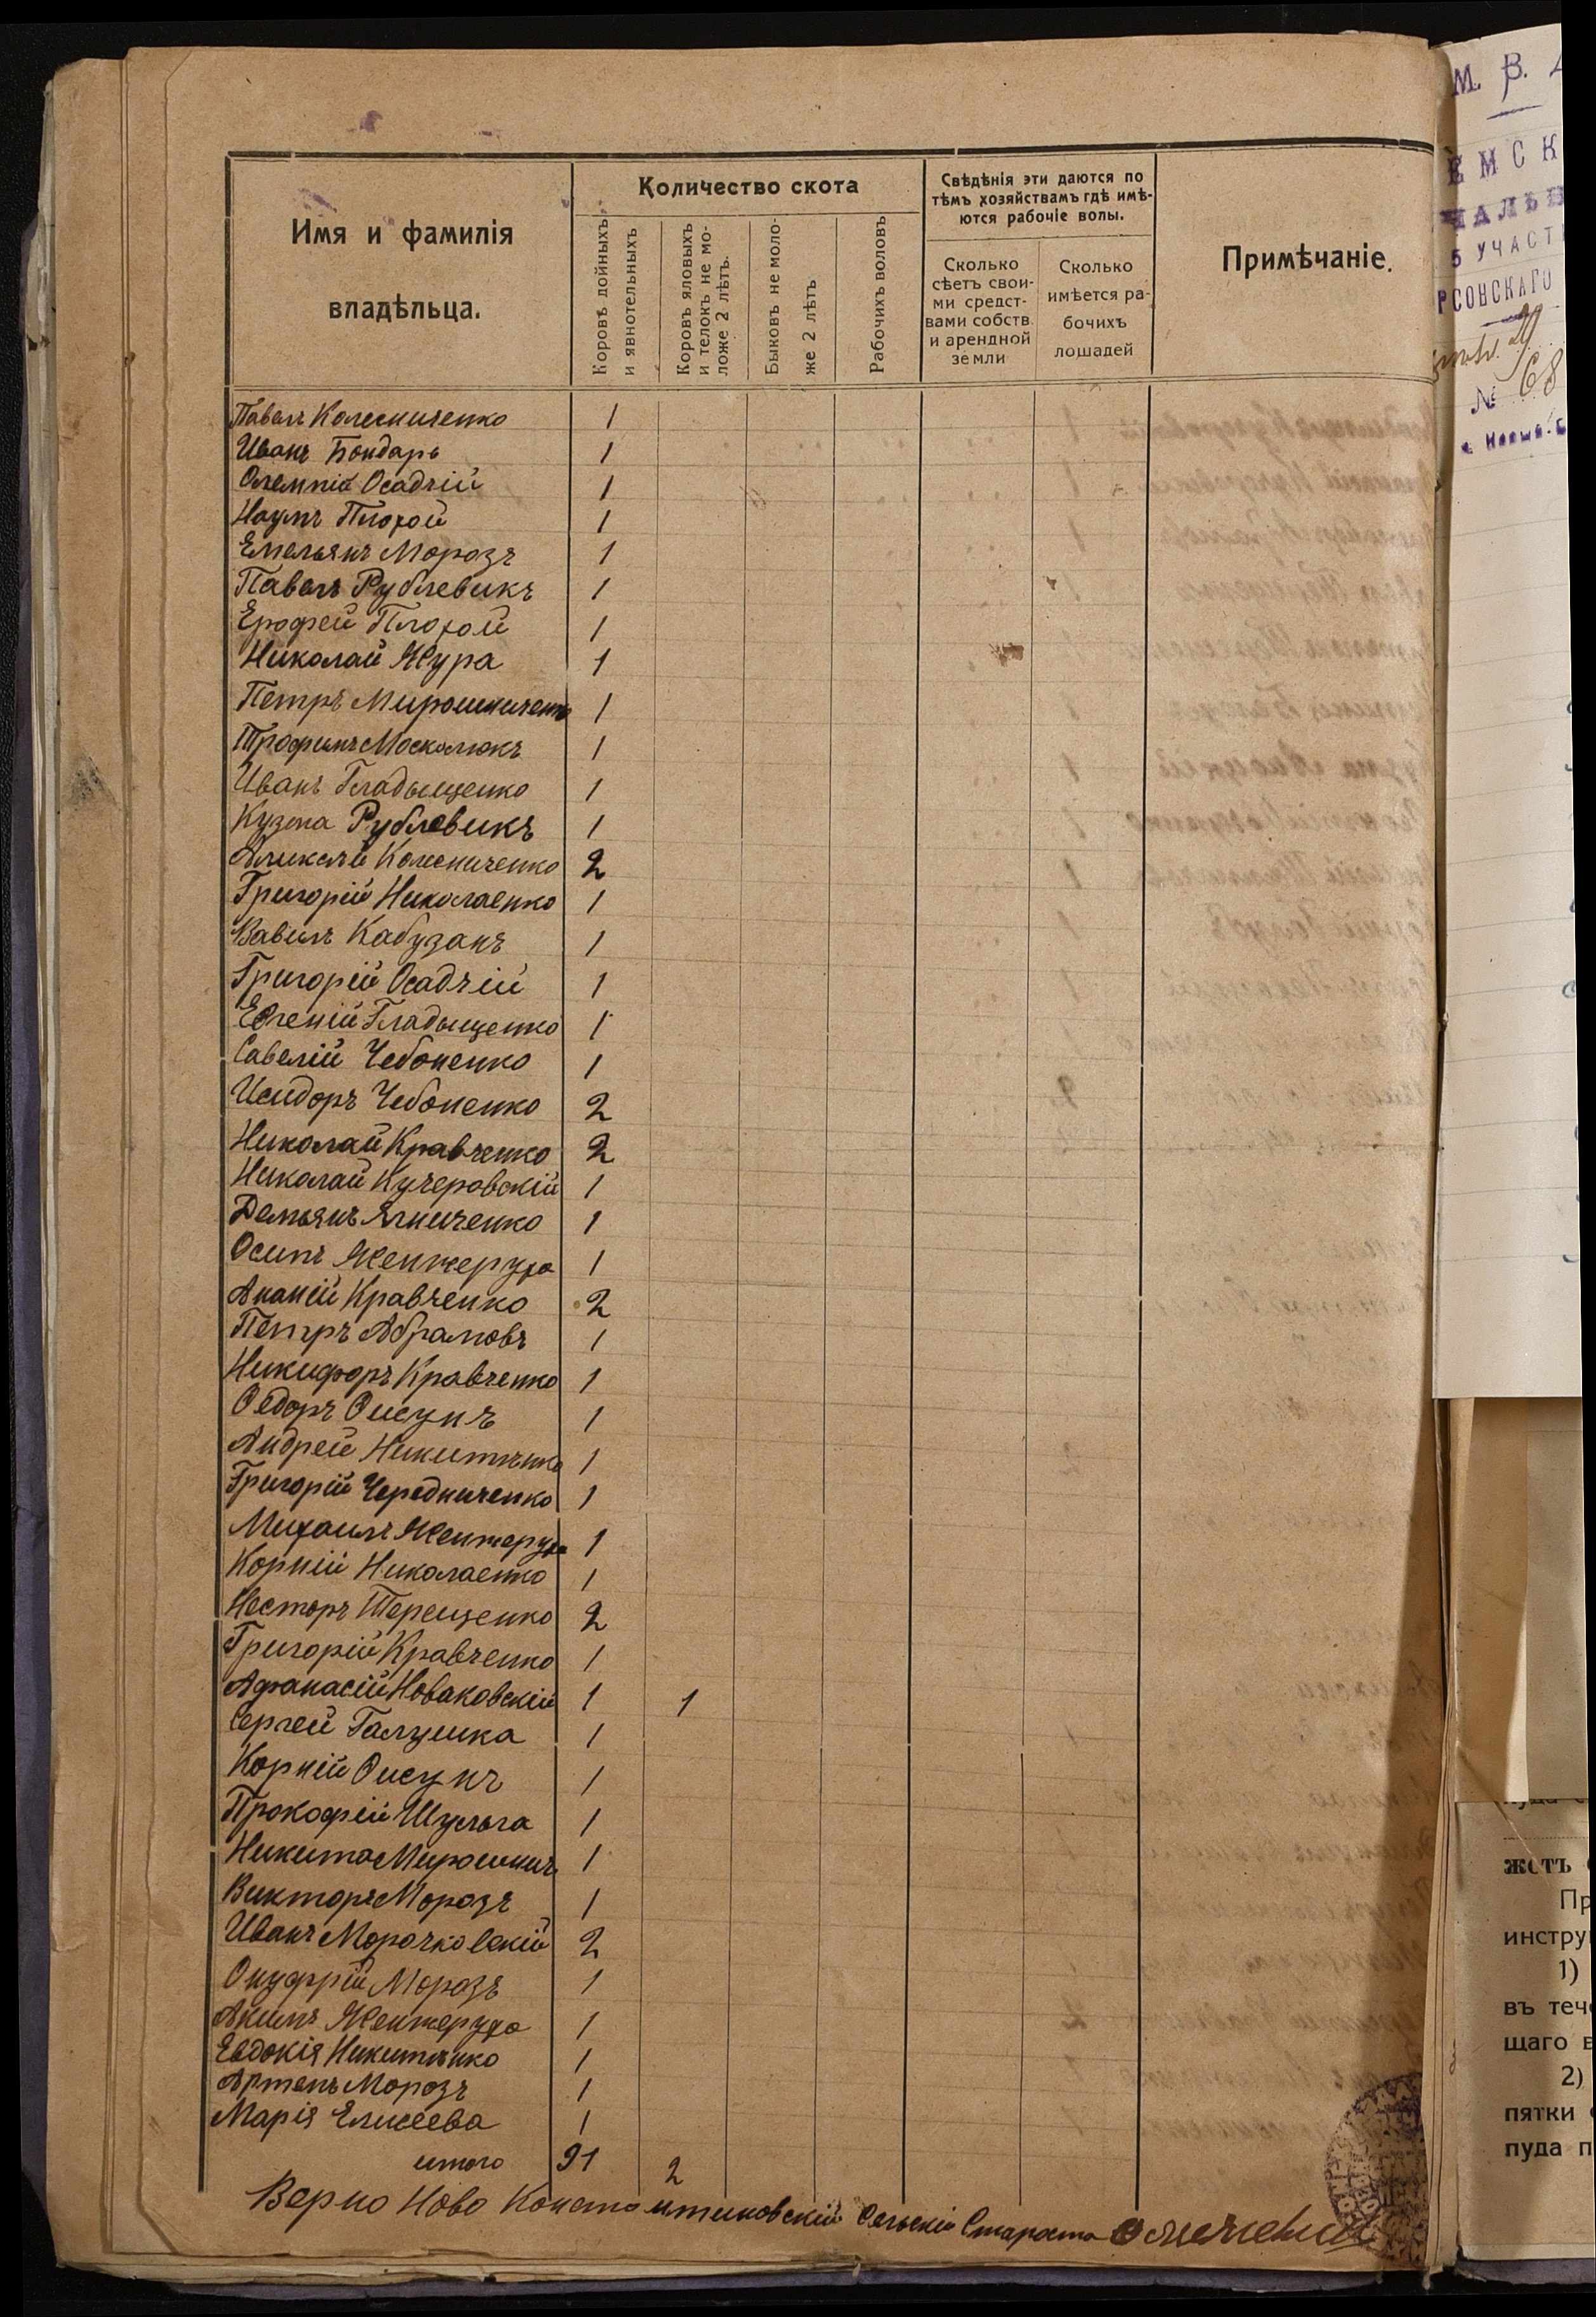 Имя и фамилія
владѣльца.
Количество скота
Коровъ дойныхъ
и явнотельныхъ
Коровъ яловыхъ
и телокъ не мо-
ложе 2 лѣтъ.
Быковъ не моло-
же 2 лѣтъ
Рабочихъ воловъ
Свѣдѣнія эти даются по
тѣмъ хозяйствамъ гдѣ имѣ-
ются рабочіе волы.
Сколько
сѣетъ свои-
ми средст-
вами собств.
и арендной
земли
Сколько
имѣется ра-
бочихъ
лошадей
Примѣчаніе.
Павелъ Колесниченко 1
Иванъ Бондарь 1
Олемпій Осадчій 1
Наумъ Плохой 1
Емельянъ Морозъ 1
Павелъ Рублевикъ 1
Ерофей Плохой 1
Николай Жура 1
Петръ Мирошниченко 1
Трофимъ Москалюкъ 1
Иванъ Гладыщенко 1
Кузьма Рублевикъ 1
Колесниченко 2
Григорій Николаенко 1
Вавилъ Кабузанъ 1
Григорій Осадчій 1
Евгеній Гладыщенко 1
Савелій Чебоненко 1
Исидоръ Чебоненко 2
Николай Кравченко 2
Николай Кучеровскій 1
Демьянъ Ягниченко 1
Осипъ Женжеруха 1
Ананій Кравченко 2
Петръ Абрамовъ 1
Никифоръ Кравченко 1
Ѳедоръ Онсунъ 1
Андрей Никитенко 1
Григорій Чередниченко 1
Михаилъ Женжеруха 1
Корній Николаенко 1
Несторъ Терещенко 2
Григорій Кравченко 1
Афанасій Новаковскій 1 1
Сергей Галушка 1
Корній Онсунъ 1
Прокофій Шульга 1
Никита Мирошнич 1
Викторъ Морозъ 1
Иванъ Морочковскій 2
Онуфрій Морозъ 1
Акимъ Женжеруха 1
Евдокія Никитенко 1
Артемъ Морозъ 1
Марія Елисеева 1
итого 91 2
Верно Ново Константиновскій Сельскій Староста
М. В.
ЕМСК
ЧАЛЬН
5 УЧАСТ
РСОНСКАГО
29
№ 68
жетъ
Пр
инстру
1)
въ тече
щаго в
2)
пятки
пуда п